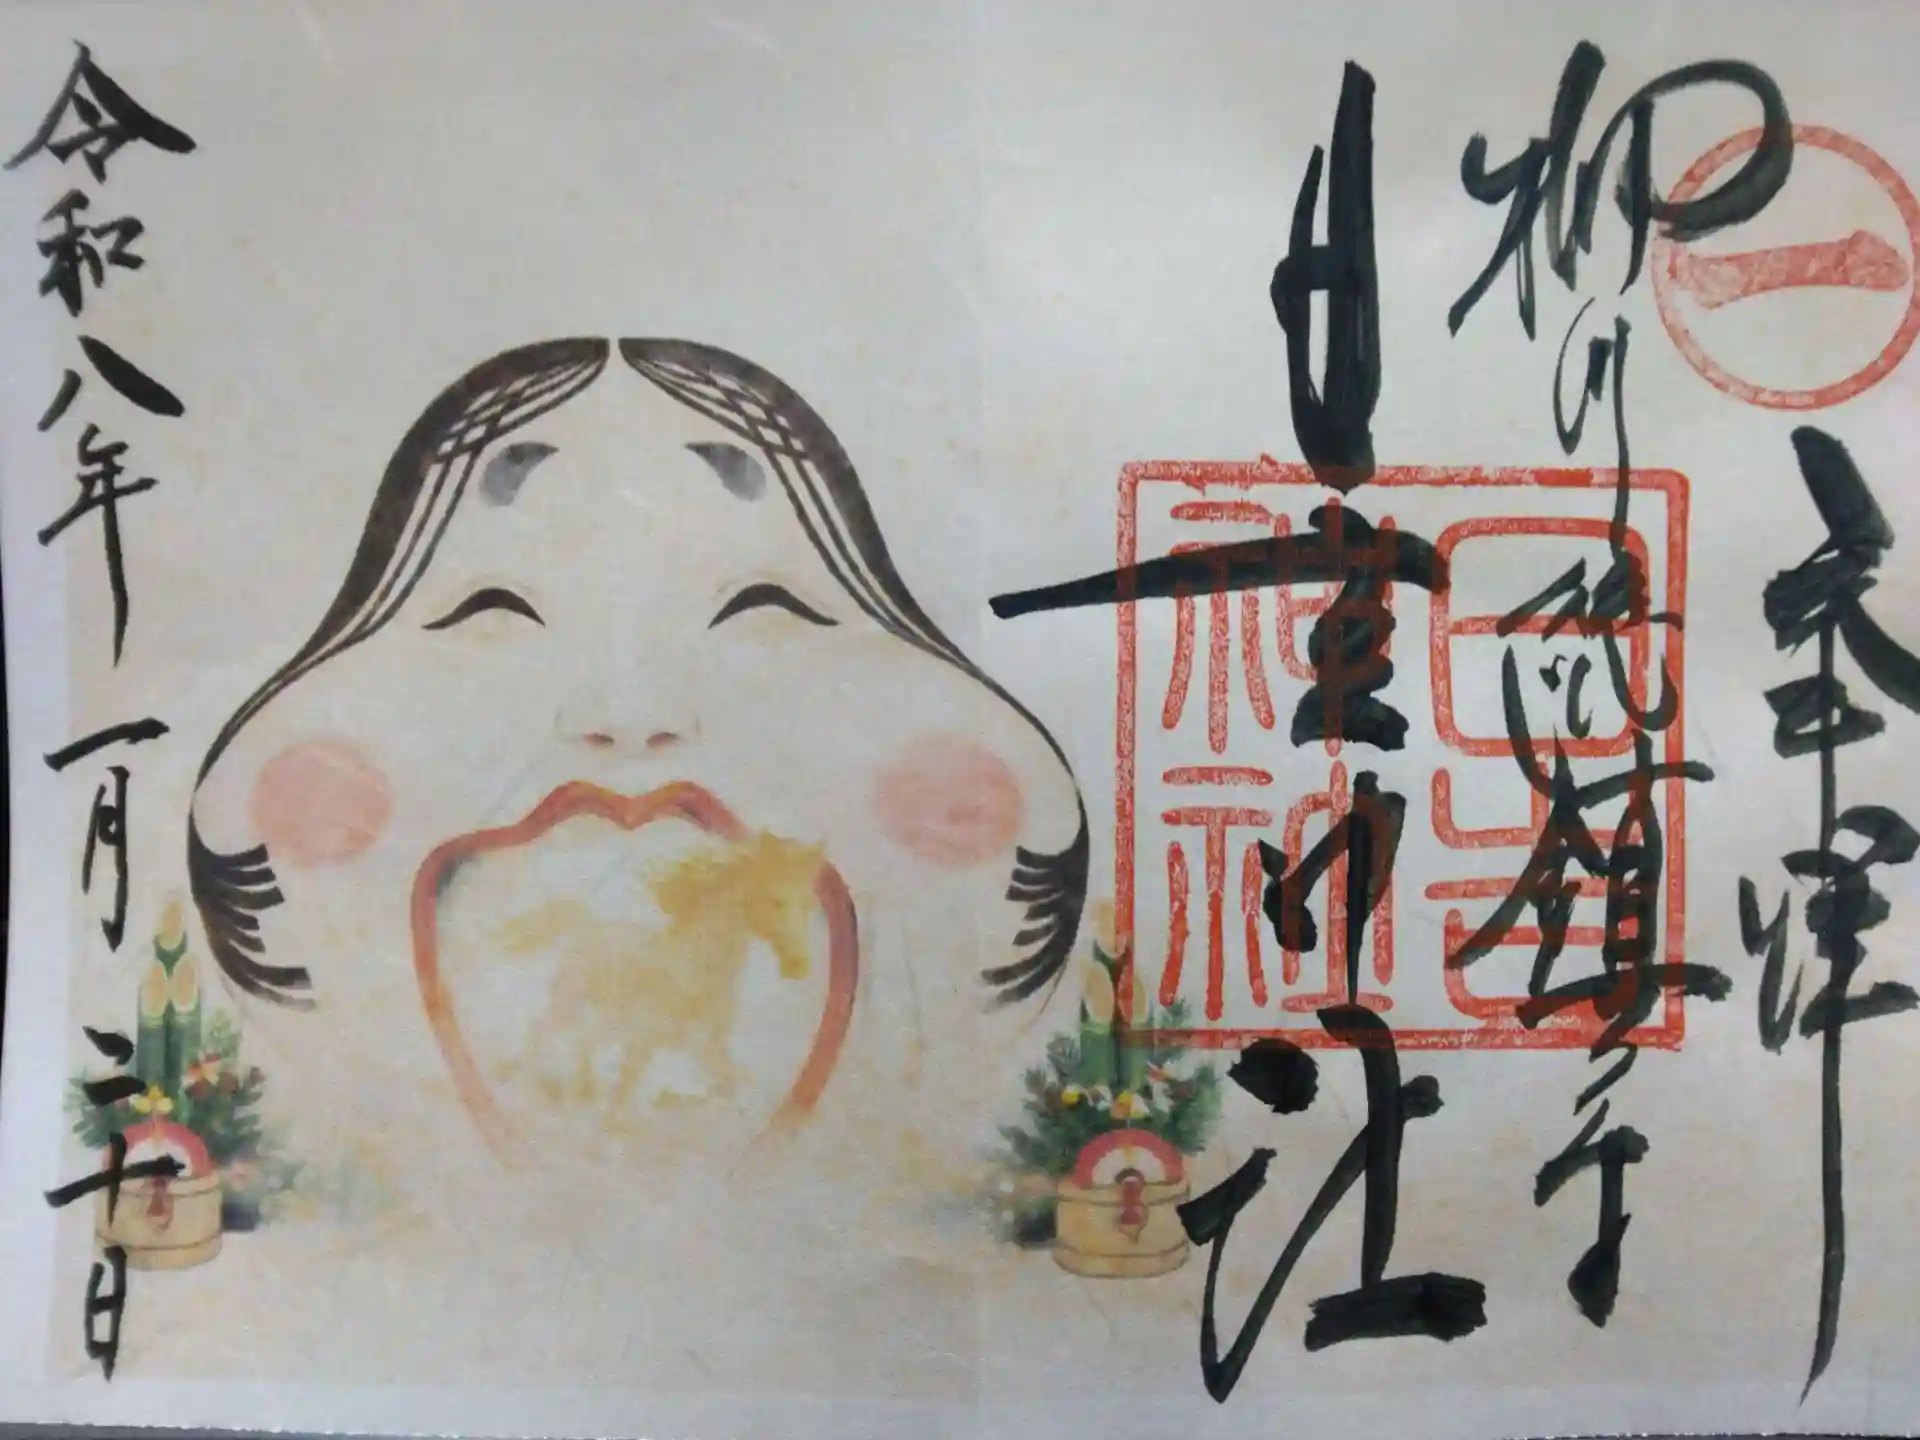 奉拝
一
柳川総鎮守
日吉神社
日吉
神社
令和八年一月二十日